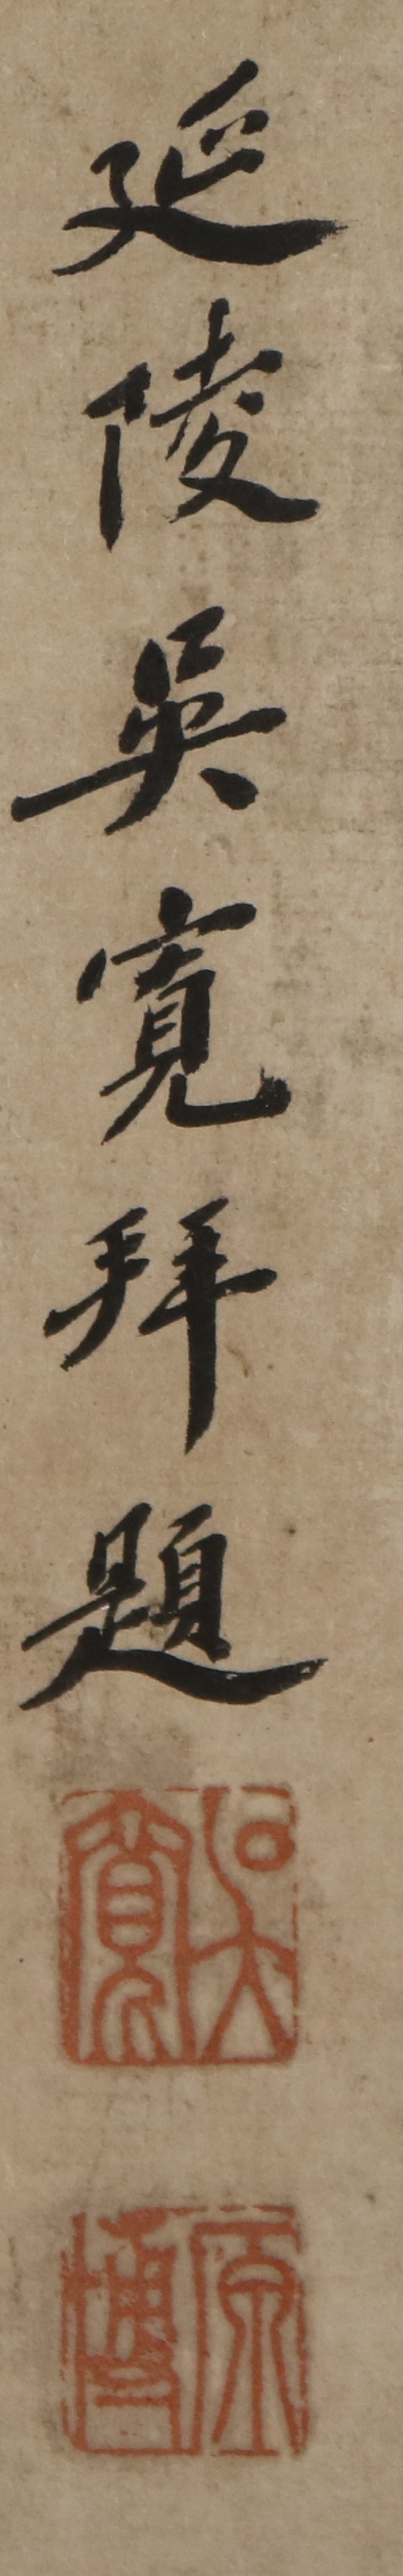 延陵吳寬拜題
吳寬
原博